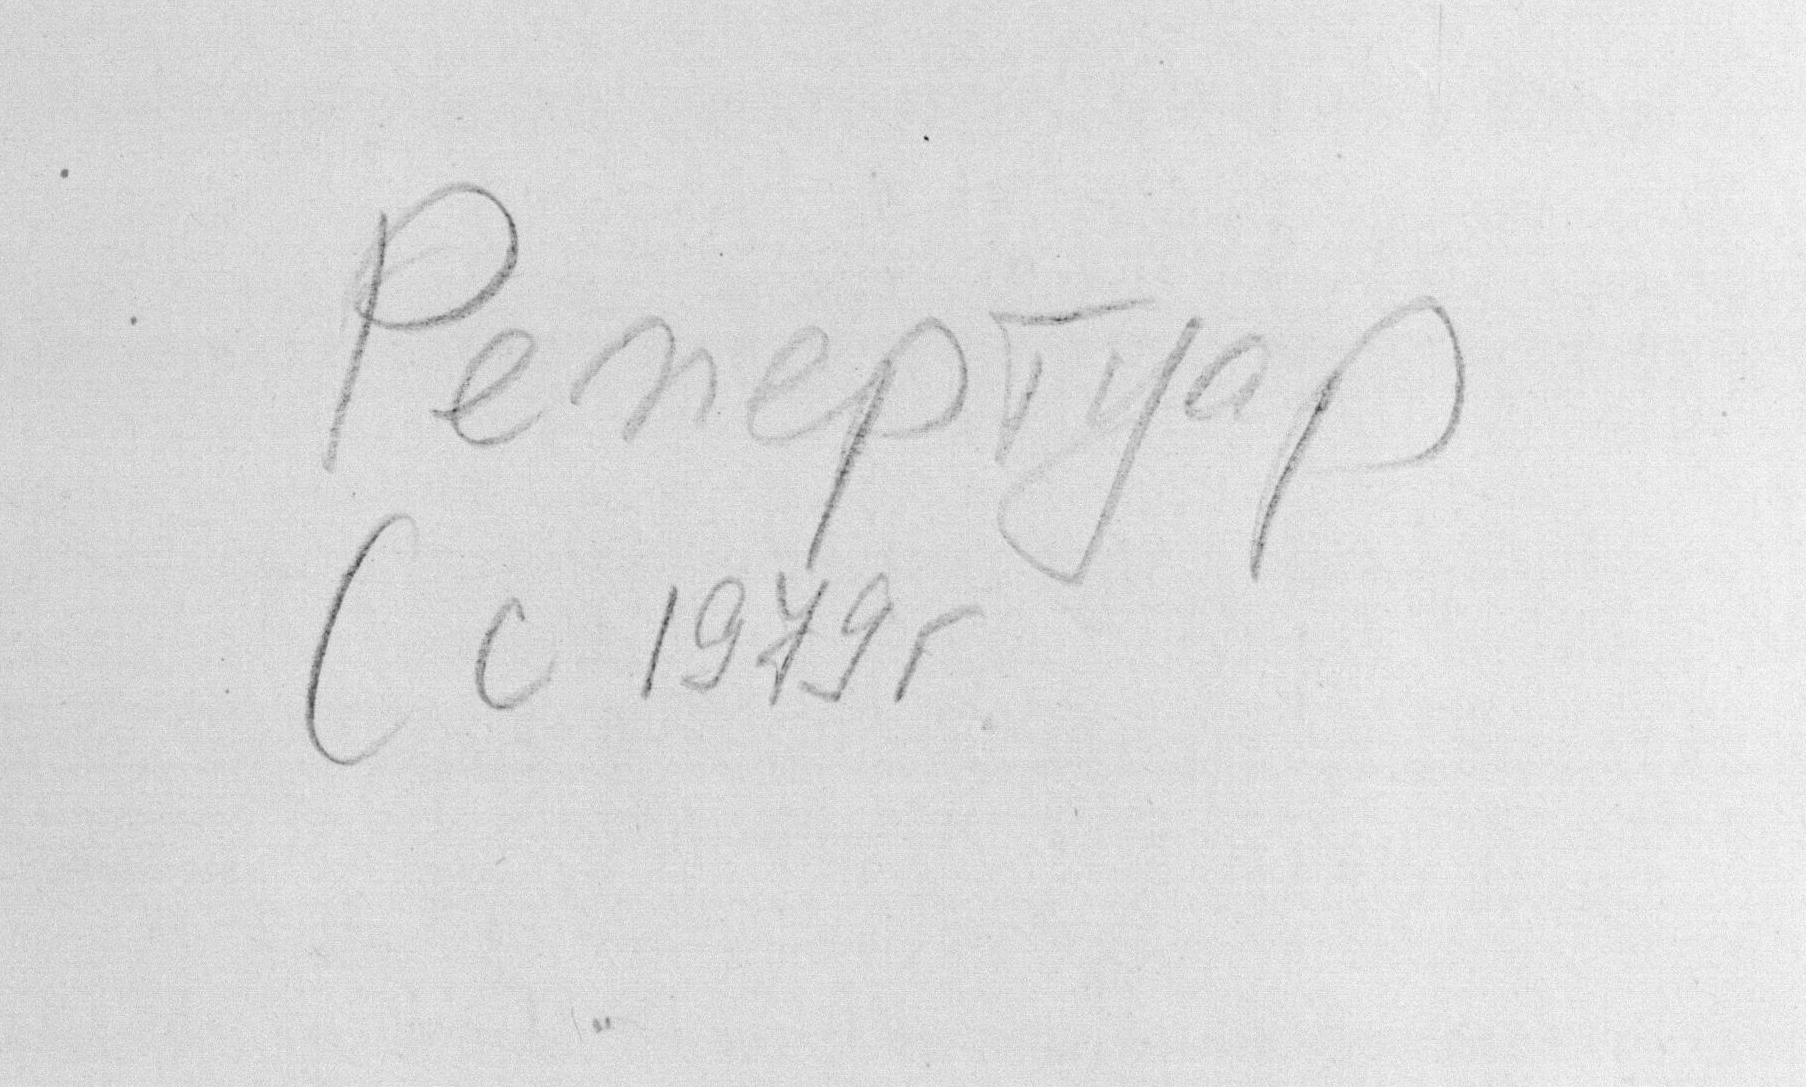 Репертуар
(с 1979г.